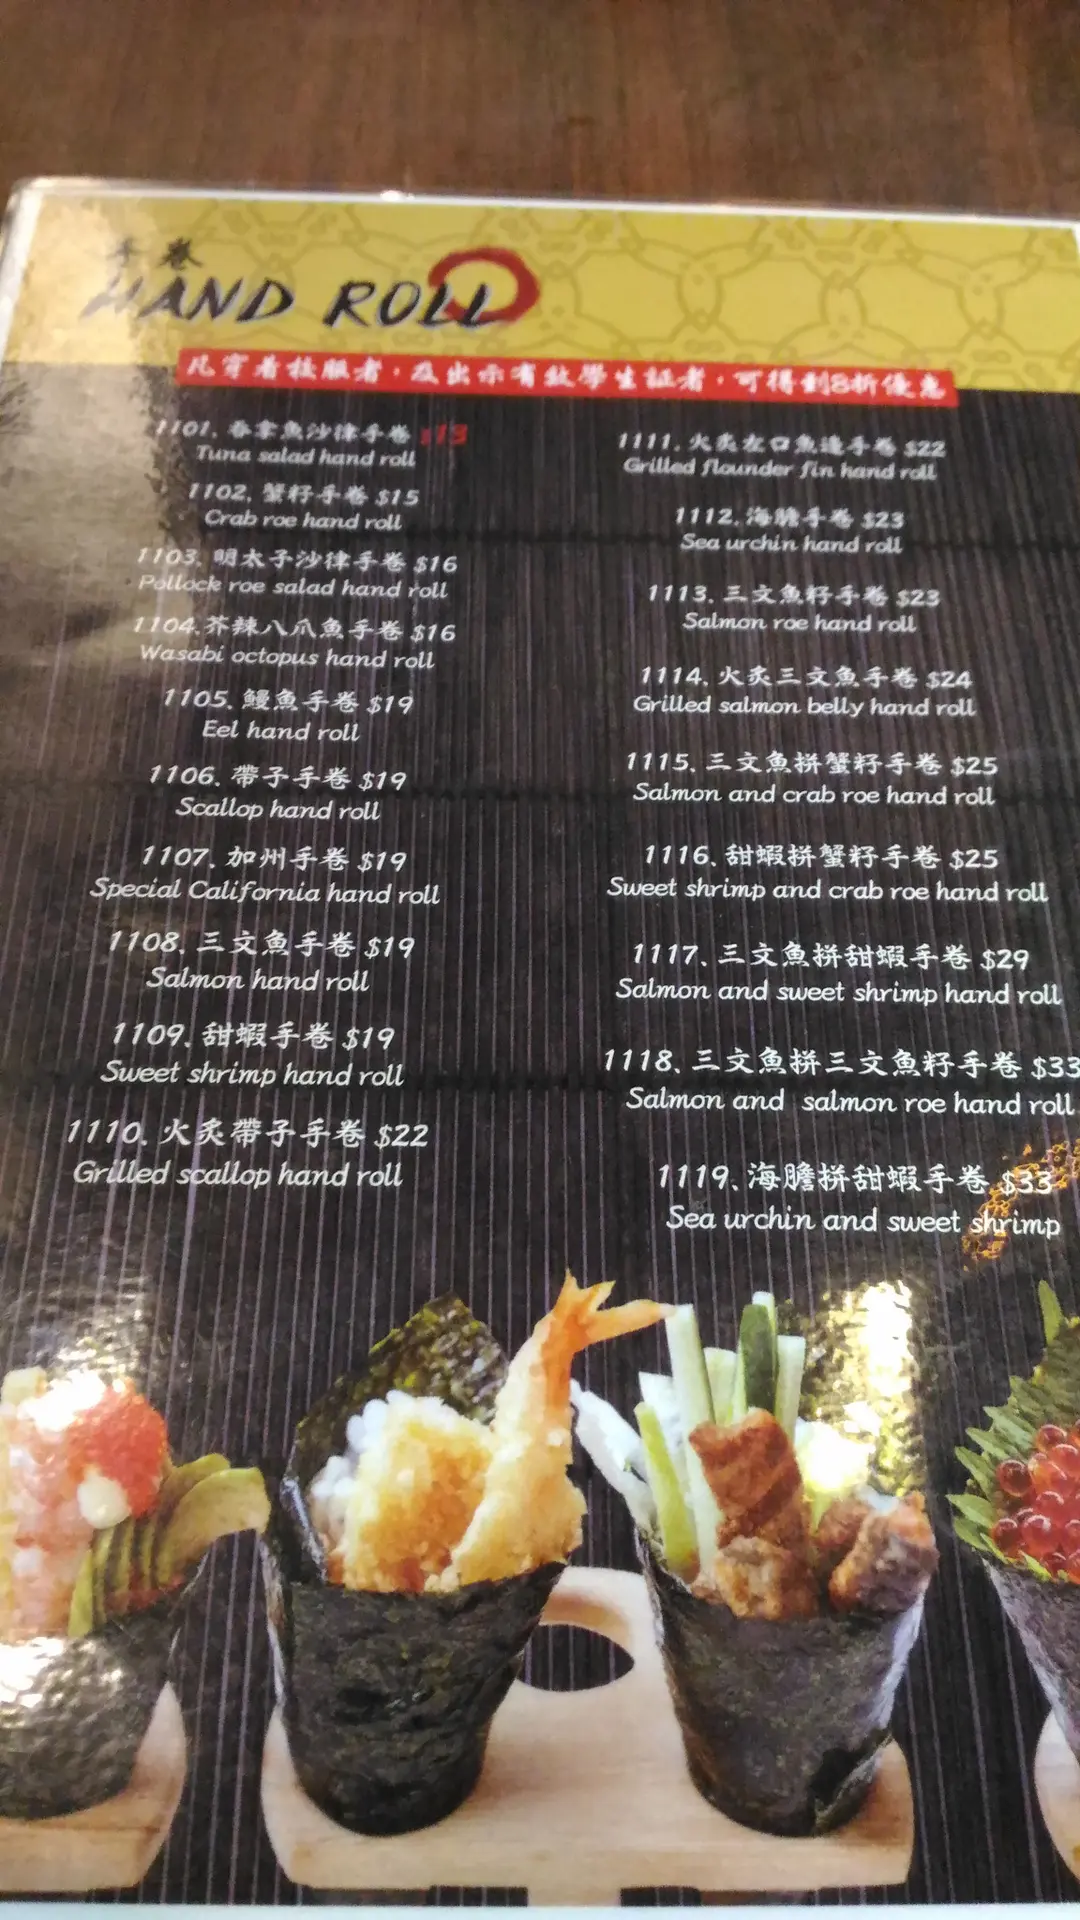 手卷
HAND ROLL
凡穿着校服者，及出示有效學生証者，可得到8折優惠
1101. 吞拿魚沙律手卷 $13
Tuna salad hand roll
1102. 蟹籽手卷 $15
Crab roe hand roll
1103. 明太子沙律手卷 $16
Pollock roe salad hand roll
1104. 芥辣八爪魚手卷 $16
Wasabi octopus hand roll
1105. 鰻魚手卷 $19
Eel hand roll
1106. 帶子手卷 $19
Scallop hand roll
1107. 加州手卷 $19
Special California hand roll
1108. 三文魚手卷 $19
Salmon hand roll
1109. 甜蝦手卷 $19
Sweet shrimp hand roll
1110. 火炙帶子手卷 $22
Grilled scallop hand roll
1111. 火炙左口魚邊手卷 $22
Grilled flounder fin hand roll
1112. 海膽手卷 $23
Sea urchin hand roll
1113. 三文魚籽手卷 $23
Salmon roe hand roll
1114. 火炙三文魚手卷 $24
Grilled salmon belly hand roll
1115. 三文魚拼蟹籽手卷 $25
Salmon and crab roe hand roll
1116. 甜蝦拼蟹籽手卷 $25
Sweet shrimp and crab roe hand roll
1117. 三文魚拼甜蝦手卷 $29
Salmon and sweet shrimp hand roll
1118. 三文魚拼三文魚籽手卷 $33
Salmon and salmon roe hand roll
1119. 海膽拼甜蝦手卷 $33
Sea urchin and sweet shrimp